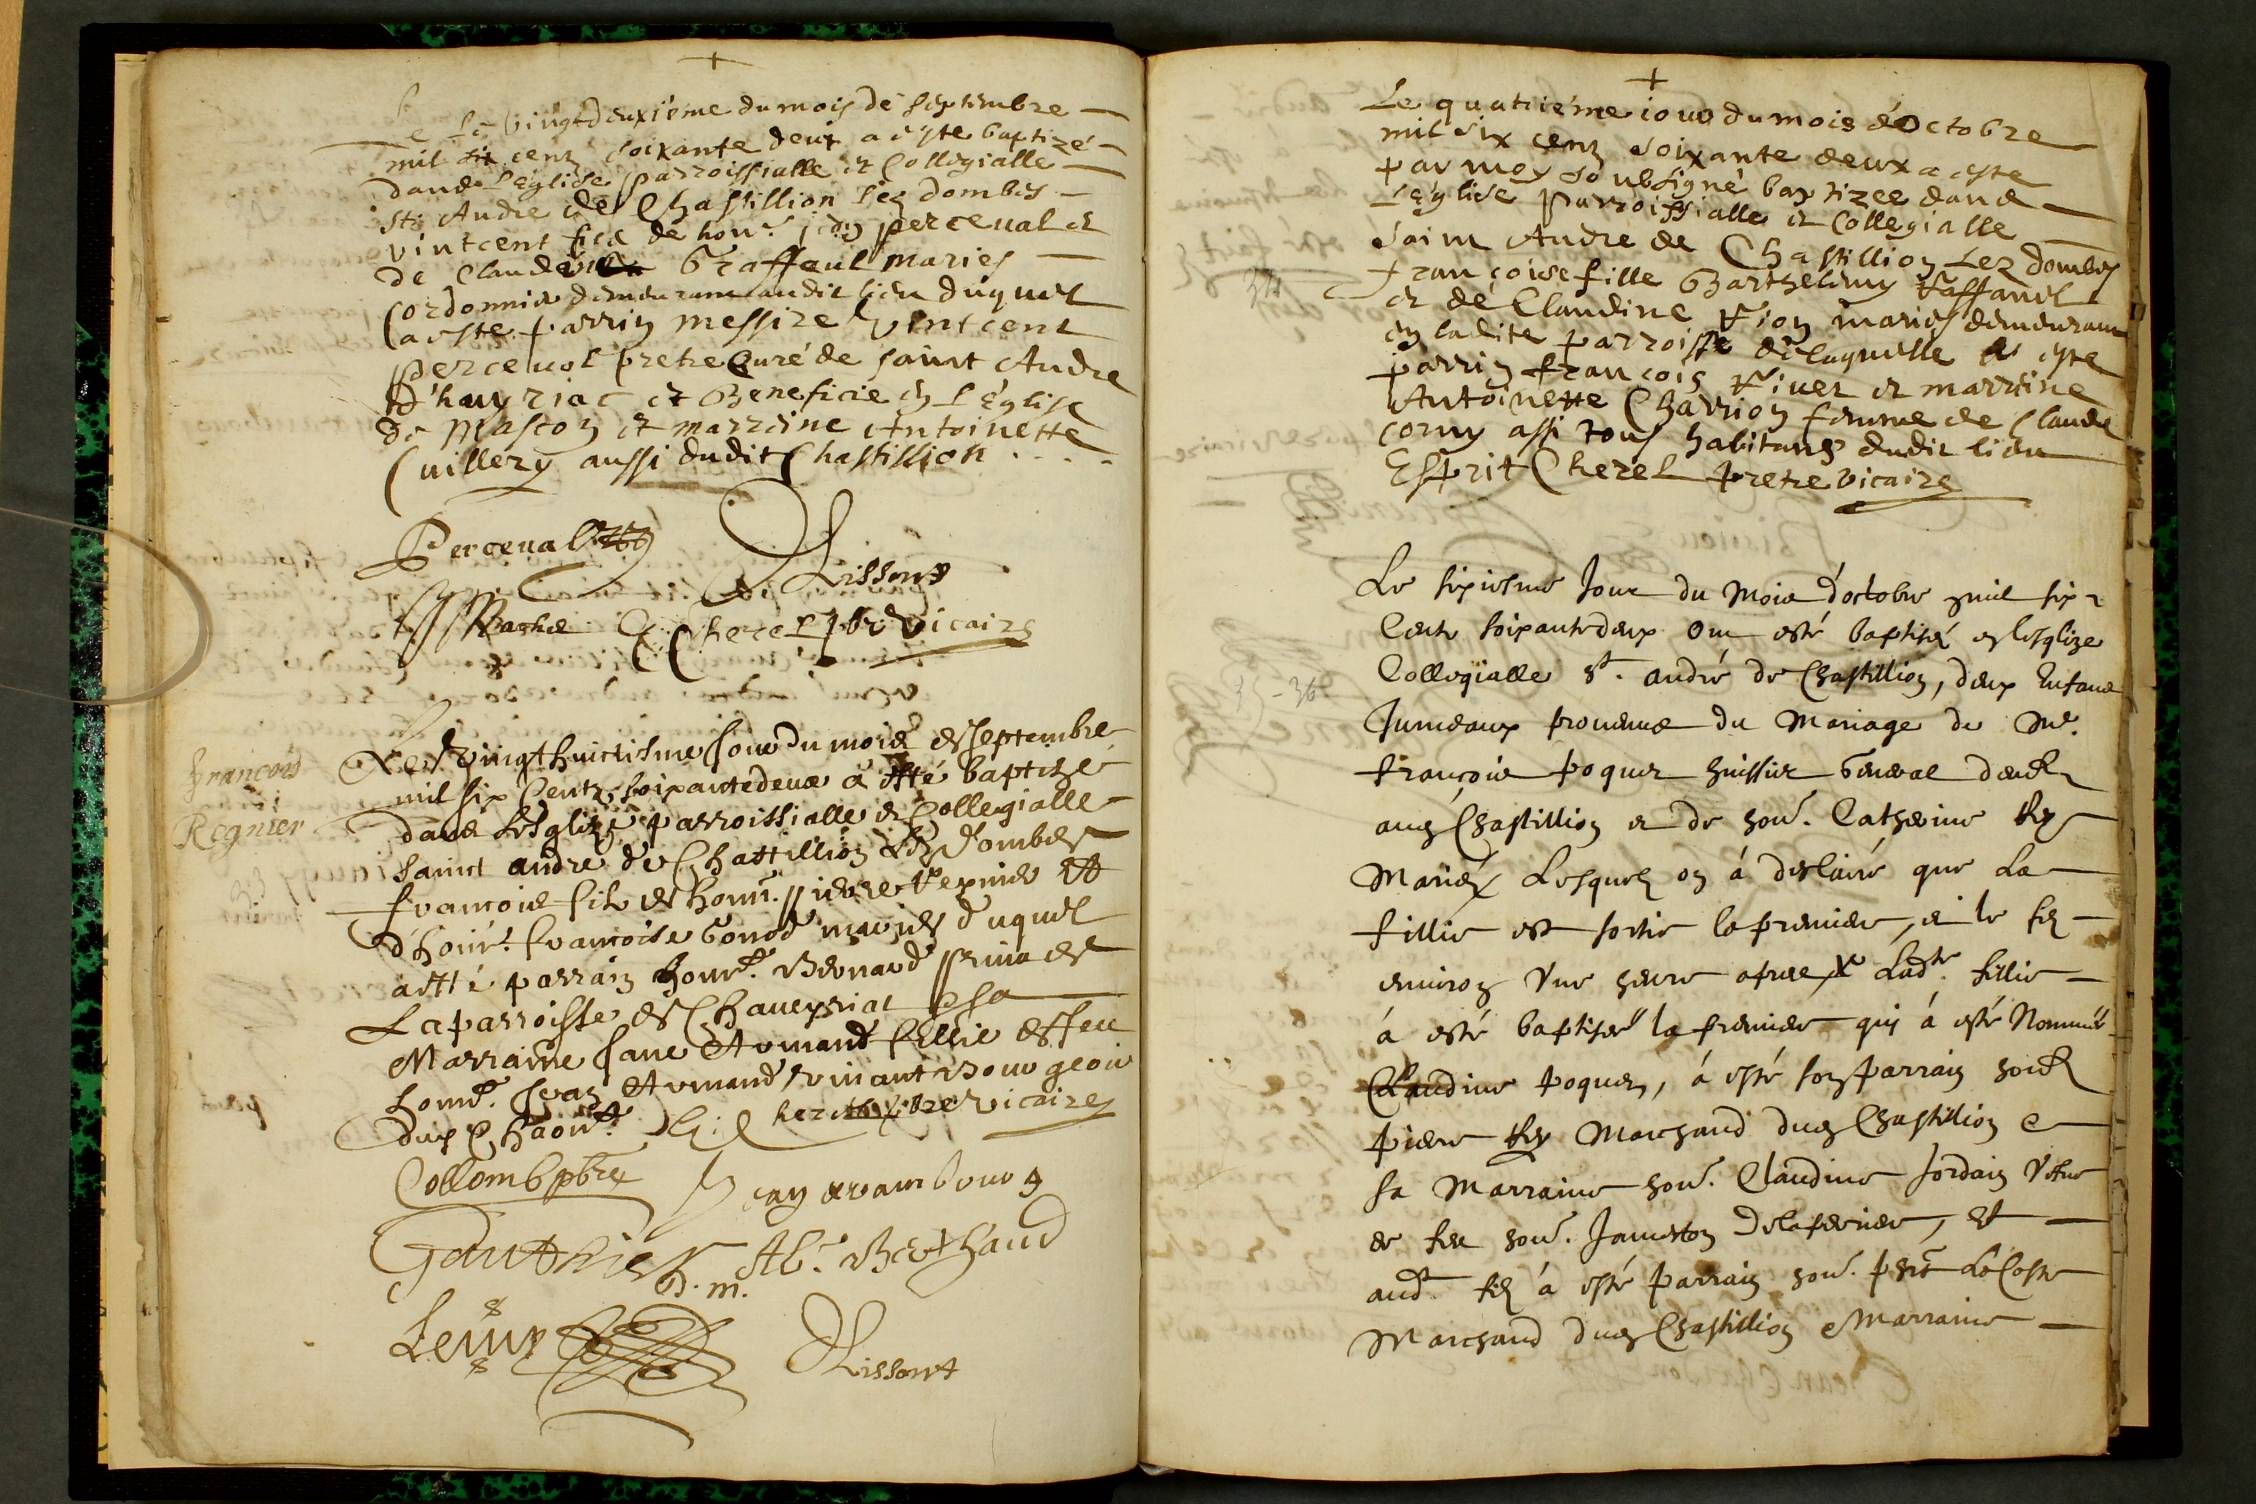 Le vingtdeuxiéme du mois de septembre
mil six cenz soixante deux a este baptizé
dans L'église parroissialle et Collegialle
St Andre de Chastillion Lez dombes
vintcent fils de hon. perceual et
de Claudine Graffaul mariés
Cordonnier demeurant audit lieu duquel
a este parrin messire Vintcent
perceual pretre Curé de saint Andre
d'hauyriac et Beneficié en L'église
de Mascon et marreine Antoinette
Cuillery aussi dudit Chastillion
Perceual
Rissont
Vache
E Cherel pbr Vicaire
Le vingthuictisme Jour du mois de septembre
mil six Centz soixantedeux à esté baptize
dans L'esglize parroissialle et Collegialle
sainct andre de Chattillion Lez Dombes
francois filz de honn. pierre Regnier et
d'honn. francoise Gonod mariés duquel
à esté parrain honn. Bernard
La parroisse de Chaueyriat et sa
Marraine Jane Armand fillie de feu
honn. Jean Armand viuant Bourgeois
dud Chaon.
E. Cherel pbre Vicaire
Francois
Regnier
Collomb pbre
Jean Arambourg
Gauthier
D. m.
Al. Berthaud
Rissont
Le quatriéme iour du mois d'Octobre
mil six cenz soixante deux a este
par moy soubsigné baptizee dans
L'église Parroissialle et Collegialle
saint Andre de Chastillion Lez dombes
françoise fille Barthelemy Vaffauil
et de Claudine Vion mariés demeurant
en ladite parroisse de laquelle a este
parrin françois Viuer et marreine
Antoinette Charrion femme de Claude
corny assi tous habitans dudit lieu
Esprit Cherel pretre vicaire
34
Le sixiesme Jour du Mois d'octobre mil six
Cents soixantedeux ont esté baptisés en l'esglize
Collegialle St. andré de Chastillion, deux Enfans
Jumeaux prouenus du Mariage de Me.
françois poquet huissier General
aud Chastillion et de hon. Catherine Rey
Mariés Lesquelz on à desclairé que La
fillie est sortie la premiere, et le filz
enuiron Vne heure apres et Ladte. fillie
à esté baptisée la premiere qui à esté Nommée
Claudine poquet, à esté son parrain
pierre Rey Marchand dud Chastillion et
sa Marraine hon. Claudine Jordain Vefue
de feu hon. Delaperriere, Et
aud. filz à esté parrain hon. LaCoste
Marchand dud Chastillion et Marraine
35-36